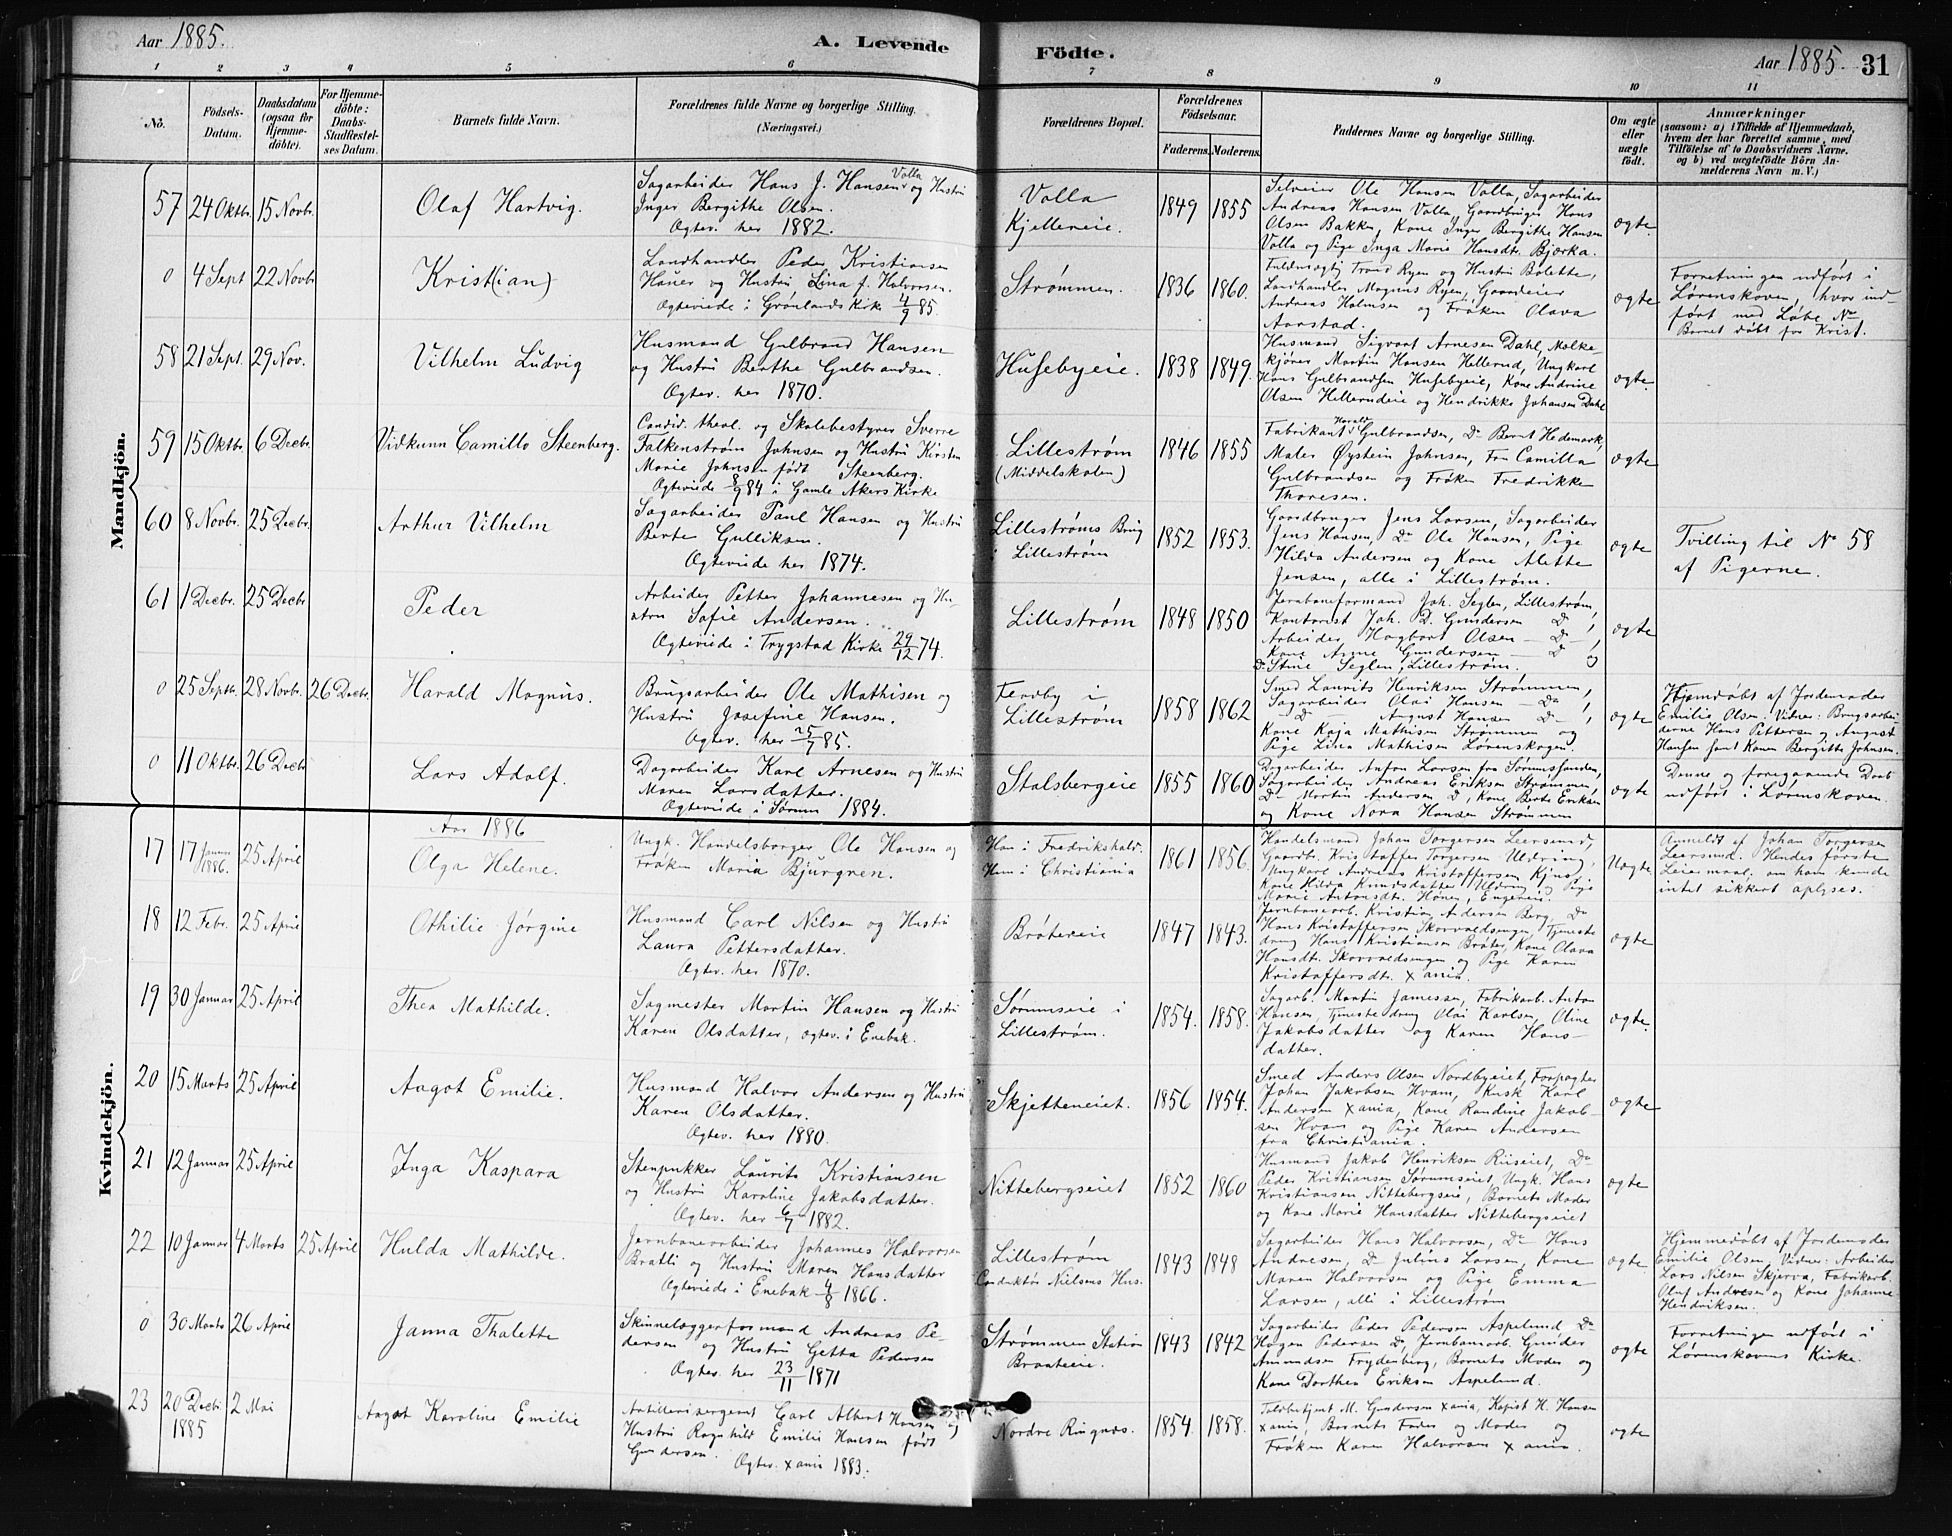 Aar 1885.
A. Levende Födte.
Aar 1885. 31
1 2 3 4 5 6 7 8 9 10 11
No.
Födsels-Datum.
Daabsdatum (ogsaa for Hjemme-döbte).
For Hjemme-döbte: Daabs-Stadfæstel-ses Datum.
Barnets fulde Navn.
Forældrenes fulde Navne og borgerlige Stilling.
(Næringsvei.)
Forældrenes Bopæl.
Forældrenes Födselsaar.
Faderens. Moderens.
Faddernes Navne og borgerlige Stilling.
Om ægte eller uægte födt.
Anmærkninger
(saasom: a) i Tilfælde af Hjemmedaab,
hvem der har forrettet samme, med
Tilföielse af to Daabsvidners Navne.
og b) ved uægtefödte Börn An-
melderens Navn m. V.)
Mandkjön.
57 24 Oktbr. 15 Novbr. Olaf Hartvig.
Sagarbeider Hans J. Hansen Valla og Hustru
Inger Bergithe Olsen.
Ægtev. her 1882.
Valla
Kjellereie.
1849 1855
Selveier Ole Hansen Valla, Sagarbeider
Andreas Hansen Valla, Gaardbruger Hans
Olsen Bakken, Kone Inger Bergithe Hansen
Valla og Pige Inga Marie Hansdt. Bjerka.
ægte
0 4 Sept 22 Novbr Krist(ian)
Landhandler Peder Kristiansen
Hauer og Hustru Lina f. Halvorsen.
Ægteviede i Grønlands Kirk 4/9 85.
Strømmen.
1836 1860.
Fuldmægtig Trond Ryen og Hustru Bolette,
Landhandler Magnus Ryen, Gaardeier
Andreas Holmsen og Frøken Olava
Aarstad.
ægte
Forretningen udført i
Lørenskoven, hvor ind-
ført med Løbe No
Barnet døbt for Krist.
58 21 Sept. 29 Nov. Vilhelm Ludvig
Husmand Gulbrand Hansen
og Hustru Berthe Gulbrandsen.
Ægtev. her 1870.
Husebyeie.
1838 1849.
Husmand Sigvart Arnesen Dahl, Melke-
kjører Martin Hansen Hellerud, Ungkarl
Hans Gulbrandsen Husebyeie, Kone Andrine
Olsen Hellerudeie og Hendrikke Johansen Dahl
ægte
59 15 Oktbr. 6 Decbr. Vidkunn Camillo Steenberg.
Candid. theol. og Skolebestyrer Sverre
Falkenstrøm Johnsen og Hustru Kirsten
Marie Johnsen født Steenberg.
Ægteviede 8/9 84 i Gamle Akers Kirke
Lillestrøm
(Middelskolen)
1846 1855
Fabrikant Harald Gulbrandsen, Do Bernt Hedemark,
Maler Øystein Johnsen, Fru Camilla
Gulbrandsen og Frøken Fredrikke
Thoresen.
ægte
60 8 Novbr. 25 Decbr. Arthur Vilhelm
Sagarbeider Paul Hansen og Hustru
Berte Gulliksen.
Ægteviede her 1874.
Lillestrøms Brug
i Lillestrøm
1852 1853.
Gaardbruger Jens Larsen, Sagarbeider
Jens Hansen, Do Ole Hansen, Pige
Hilda Andersen og Kone Alette
Jensen, alle i Lillestrøm.
ægte
Tvilling til No 58
af Pigerne.
61 1 Decbr. 25 Decbr Peder
Arbeider Petter Johannesen og Hu-
stru Sofie Andersen.
Ægteviede i Trygstad Kirke 29/12 74.
Lillestrøm
1848 1850
Jernbaneformand Joh. Seglen, Lillestrøm,
Kontorist Joh. D. Gundersen - D -,
Arbeider Hagbart Olsen - D -,
Kone Anne Gundersen - D og
Do Stine Seglen, Lillestrøm.
ægte
0 25 Septb. 28 Novbr. 26 Decbr. Harald Magnus.
Brugsarbeider Ole Mathisen og
Hustru Josefine Hansen.
Ægtev. her 25/7 85.
Lillestrøm
1858 1862
Smed Laurits Henriksen Strømmen,
Sagarbeider Olai Hansen - Do,
- D - August Hansen D -,
Kone Kaja Mathisen Strømmen og
Pige Lina Mathisen Lørenskogen.
ægte
Hjemdøbt af Jordemoder
Emilie Olsen. Vidner: Brugsarbei-
derne Hans Pettersen og August
Hansen samt Konen Bergitte Johnsen.
0 11 Oktbr. 26 Decbr Lars Adolf.
Dagarbeider Karl Arnesen og Hustru
Maren Larsdatter.
Ægteviede i Sørum 1884.
Stalsbergeie
1855 1860
Dagarbeider Anton Larsen fra Sørumsanden,
Sagarbeider Andreas Eriksen Strømmen,
Do Martin Andersen D, Kone Berte Eriksen
og Kone Nora Hansen Strømmen
ægte
Denne og foregaaende Daab
udført i Lørenskoven.
Kvindekjön.
Aar 1886
17 17 Januar 1886. 25 April Olga Helene.
Ungk. Handelsborger Ole Hansen og
Frøken Maria Bjurgren.
Han i Fredrikshald.
Hun i Christiania
1861 1856.
Handelsmand Johan Torgersen Leersund,
Gaardb. Kristoffer Torgersen Uldring,
Ungkarl Andreas Kristoffersen Kjus,
Kone Hilda Knudsdatter Uldring og Pige
Marie Antonsdt. Hønen, Engereie.
Uægte
Anmeldt af Johan Torgersen
Leersund. Hendes første
Leiermaal. om ham kunde
intet sikkert oplyses.
18 12 Febr. 25 April Othilie Jørgine
Husmand Carl Nilsen og Hustru
Laura Pettersdatter.
Ægtev. her 1870.
Bråtereie
1847 1843.
Jernbanearb. Kristian Andersen Berg, Do
Hans Kristoffersen Skorvaldsengen, Tjeneste
dreng Hans Kristiansen Bråter, Kone Olava
Hansdt. Skorvaldsengen og Pige Karen
Kristoffersdt. Xania
ægte
19 30 Januar 25 April Thea Mathilde.
Sagmester Martin Hansen og Hustru
Karen Olsdatter, ægtev. i Enebak.
Sørumseie i
Lillestrøm.
1854. 1858.
Sagarb. Martin Jamessen, Fabrikarb. Anton
Hansen, Tjenestedreng Olai Karlsen, Oline
Jakobsdatter og Karen Hans-
datter.
ægte
20 15 Marts 25 April Aagot Emilie.
Husmand Halvor Andersen og Hustru
Karen Olsdatter.
Ægtev. her 1880.
Skjetteneiet.
1856 1854.
Smed Anders Olsen Nordbyeiet, Forpagter
Johan Jakobsen Hvam, Kusk Karl
Andersen Xania, Kone Randine Jakob-
sen Hvam og Pige Karen Andersen
fra Christiania.
ægte
21 12 Januar 25 April Inga Kaspara
Stenpukker Laurits Kristiansen
og Hustru Karoline Jakobsdatter.
Ægtev. her 6/7 1882.
Nittebergseiet
1852 1860
Husmand Jakob Henriksen Riiseiet, Do
Peder Kristiansen Sørumseiet, Ungk. Hans
Kristiansen Nittebergseie, Barnets Moder
og Kone Marie Hansdatter Nittebergseiet
ægte
22 10 Januar 4 Marts 25 April Hulda Mathilde.
Jernbanearbeider Johannes Halvorsen
Bratli og Hustru Maren Hansdatter
Ægteviede i Enebak 4/8 1866.
Lillestrøm
Conduktør Nielsens Hus.
1843 1848
Sagarbeider Hans Halvorsen, Do Hans
Andresen, Do Julius Larsen, Kone
Maren Halvorsen og Pige Emma
Larsen, alle i Lillestrøm
ægte
Hjemmedøbt af Jordemoder
Emilie Olsen. Vidner: Arbeider
Lars Nilsen Skjerva, Fabrikarb.
Oluf Andresen og Kone Johanne
Hendriksen.
0 30 Marts 26 April Janna Thalette
Skinnelæggerformand Andreas Pe-
dersen og Hustru Getta Pedersen
Ægtev. her 23/11 1871
Strømmen Station
Braateeie.
1843 1842
Sagarbeider Peder Pedersen Aspelund, Do
Hagen Pedersen D, Jernbanearb. Gunder
Amundsen Frydenberg, Barnets Moder og
Kone Dorthea Eriksen Aspelund.
ægte
Forretningen udført i
Lørenskovens Kirke.
23 20 Decbr. 1885 2 Mai Aagot Karoline Emilie
Artillerisergeant Carl Albert Hansen og
Hustru Ragnhild Emilie Hansen født
Gundersen. Ægtev. Xania 1883.
Nordre Ringnæs.
1854. 1858.
Toldbetjent M. Gundersen Xania, Kopist H. Hansen
Xania, Barnets Fader og Moder og
Frøken Karen Halvorsen Xania.
ægte